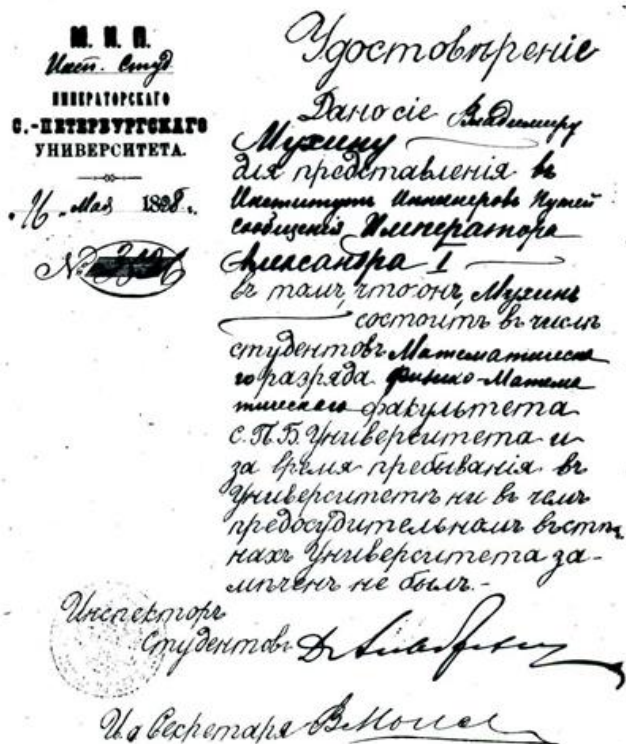 М. Н. П.
Инсп. Студ.
ИМПЕРАТОРСКАГО
С.-ПЕТЕРБУРГСКАГО
УНИВЕРСИТЕТА.
Мая 1898 г.
№
Удостовѣреніе
Дано сіе Владимиру
Мухину
для представленія въ
Институтъ Инженеровъ Путей
сообщенія Императора
Александра I
въ томъ, что онъ, Мухинъ
состоитъ въ числѣ
студентовъ Математическа
го разряда Физико-Матема
тическаго факультета
С.П.Б. Университета и
за время пребыванія въ
Университетѣ ни въ чемъ
предосудительномъ въ стѣ
нахъ Университета за-
мѣченъ не былъ.-
Инспекторъ
Студентовъ
И. д. Секретаря